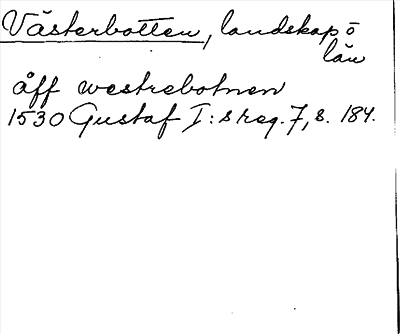 Västerbotten, landskap o
län
åff westrebotnen
1530 Gustaf I:s reg. 7, s. 184.